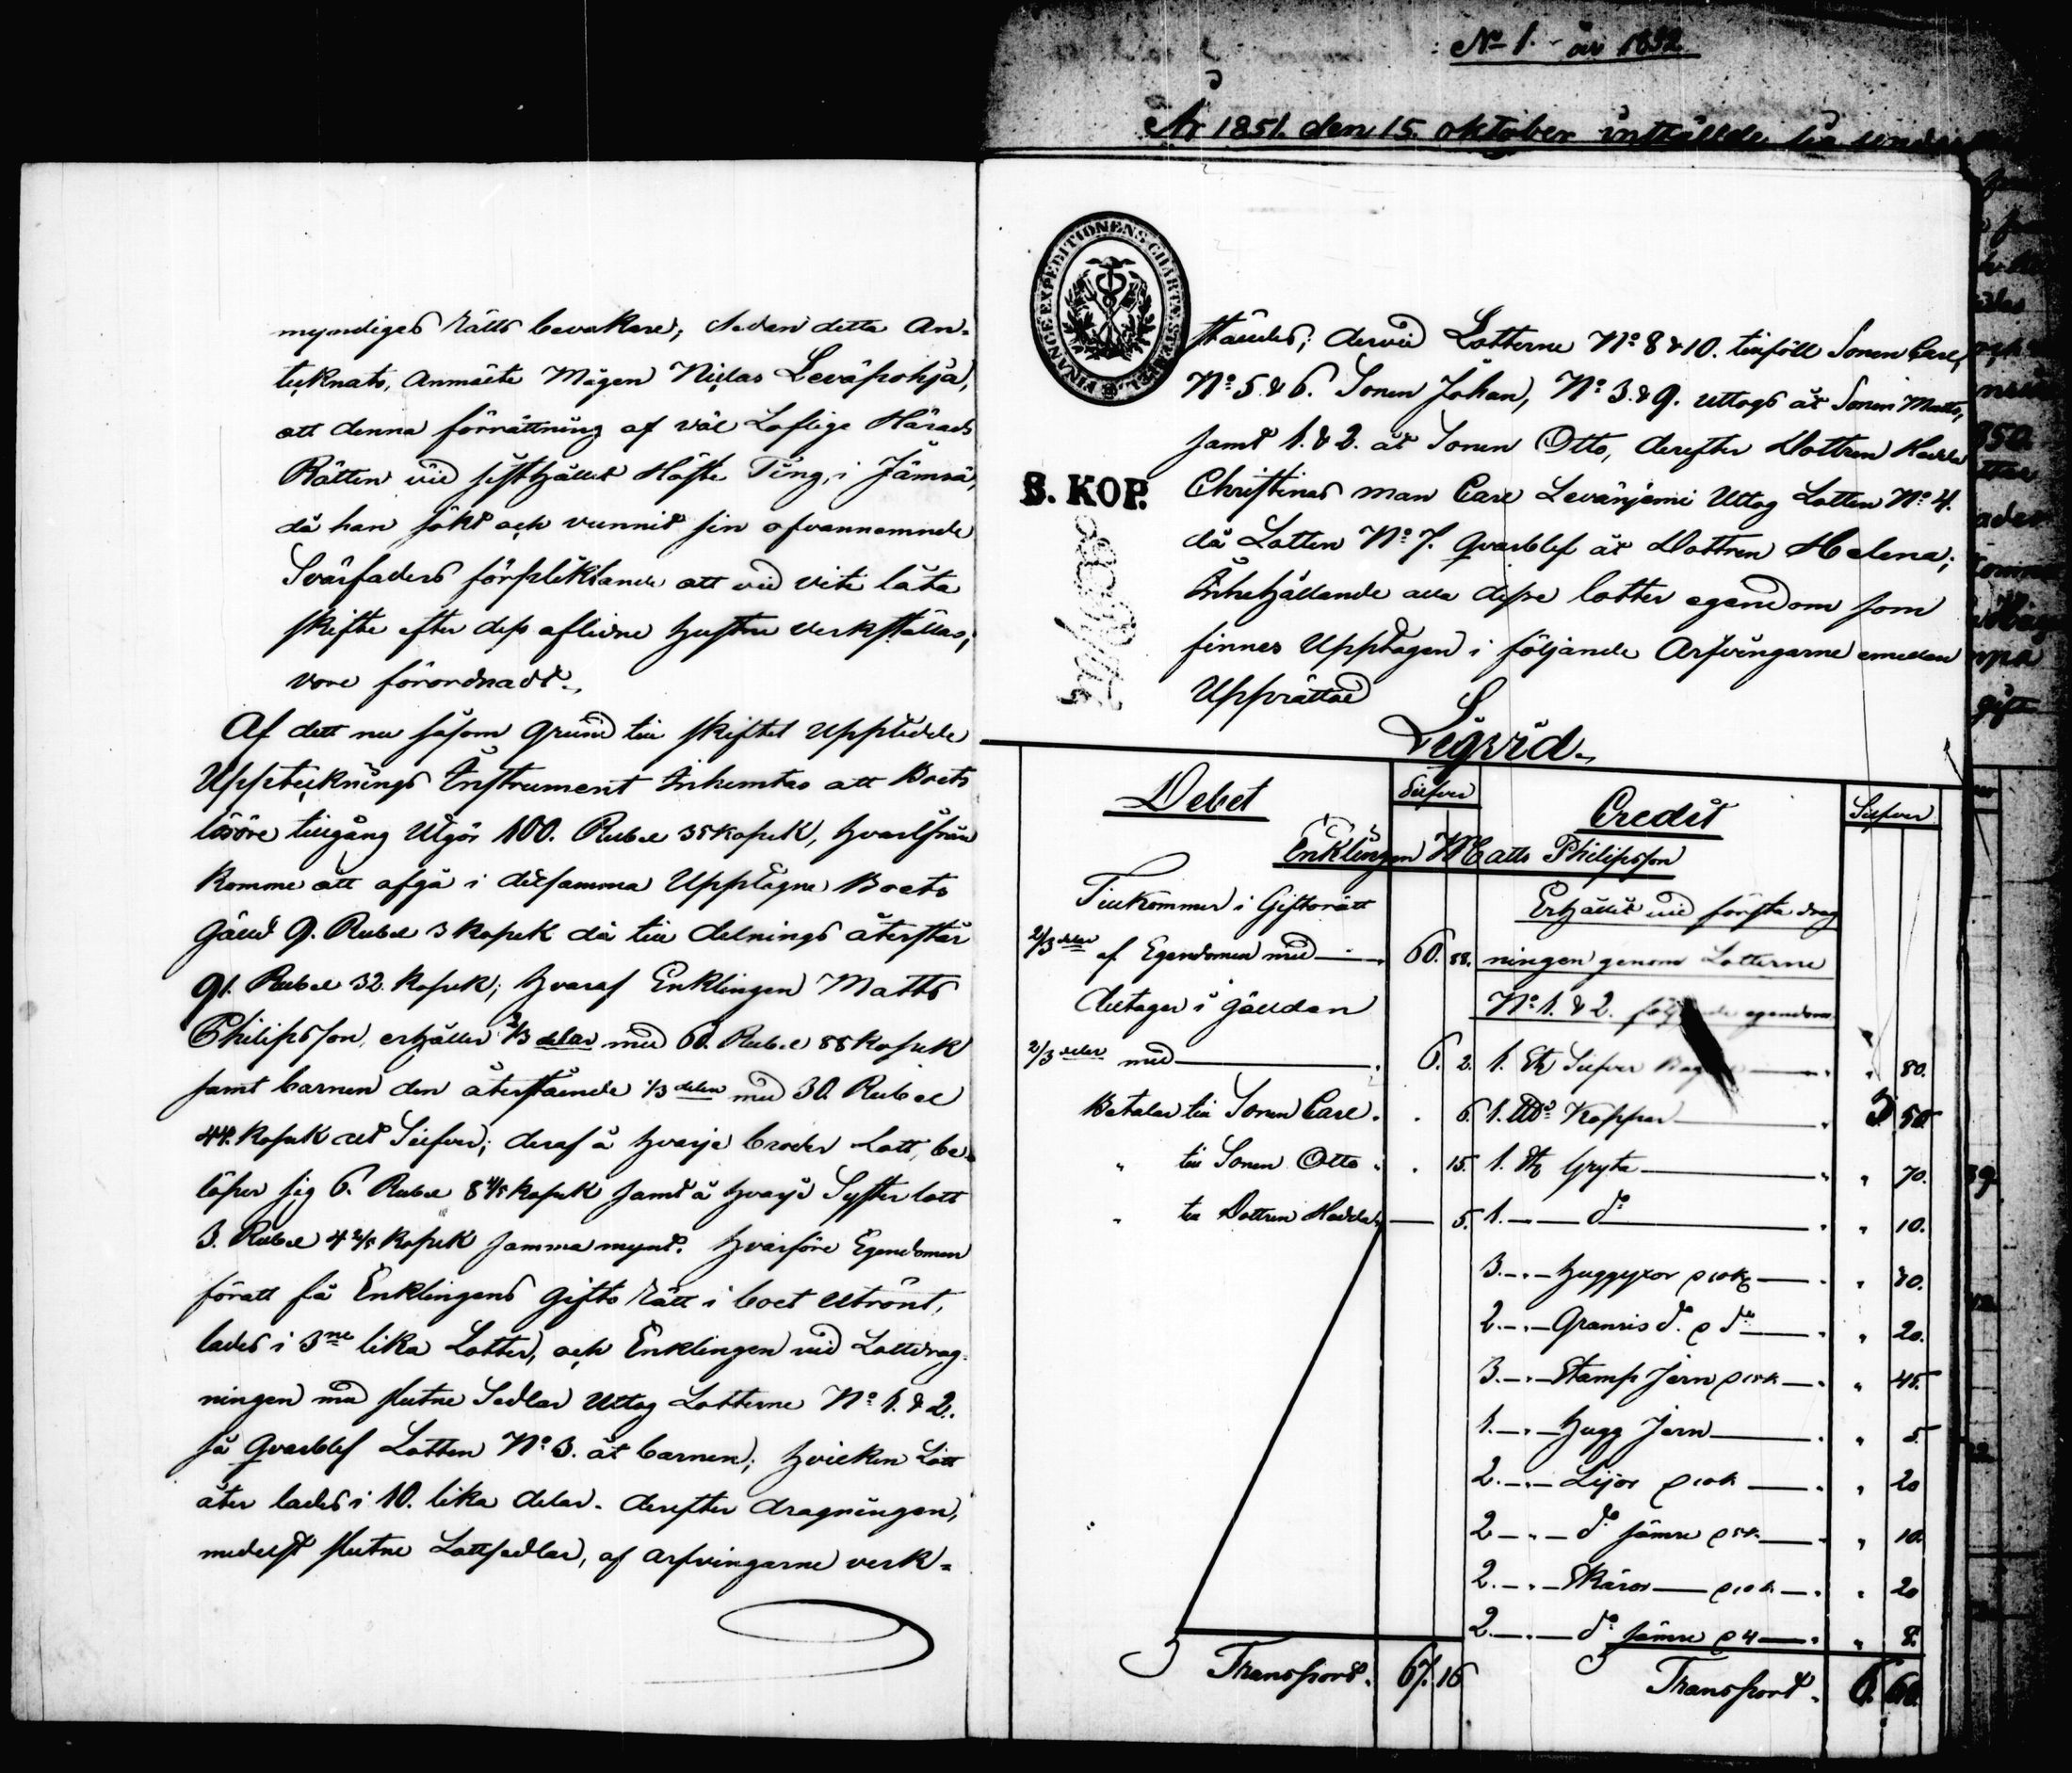 No 1. år 1852
År 1851. den 15. oktober inställde sig under
myndigas rätts bevakare; Sedan detta An-
teknats, Anmälte Mågen Niclas Leväpohja,
att denna förrättning af väl Loflige Härads
Rätten vid sisthållet Höste Ting, i Jämsä,
då han sökt och vunnit sin ofvannemnde
Svärfaders förpliktande att vid vite låta
skifte efter dess aflidne hustru verkställas,
vore förordnadt.
Af dett nu såsom grund till skiftet Upptedde
Uppteknings Instrument Inhemtas att Boets
lösöre tillgång Utgör 100. Rubel 35 kopek, hvarifrån
komme att afgå i detsamma Upptagne Boets
Gäld 9. Rubel 3 kopek då till delnings återstår
91. Rubel 32. kopek; hvaraf Enklingen Matts
Philipsson, erhåller 2/3 delar med 60. Rubel 88 kopek
samt barnen den återstående 1/3 delen med 30. Rubel
44. kopek allt Silfver; deraf å hvarje broder Lott, be-
löper sig 6. Rubel 8 4/5 kopek samt å hvarje Syster lott
3. Rubel 4 2/5 kopek samma mynt. hvarföre Egendomen
föratt få Enklingens Gifto rätt i boet Utrönt,
lades i 3ne lika Lotter, och Enklingen vid Lottdrag-
ningen med slutne Sedlar Uttog Lotterne No 1. & 2.
så qvarblef Lotten No 3. åt barnen; hvilken Lott
åter lades i 10. lika delar. derefter dragningen,
medelst slutne Lottsedlar, af arfvingarne verk-
FINANCE EXPEDITIONENS CHARTÆ STEMPEL
3. KOP.
ställdes; dervid Lotterne No 8 & 10. tillföll Sonen Carl,
No 5 & 6. Sonen Johan, No 3. & 9. uttogs åt Sonen Matts,
samt 1. & 2. åt Sonen Otto, derefter Dottren Hedda
Christinas man Carl Levänjemi Uttog Lotten No 4.
då Lotten No 7. qvarblef åt Dottren Helena;
Inhehållande alla dessa lotter egendom som
finnes Upptagen i följande Arfvingarne emellan
Upprättad
Liqvid.
Debet Silfver Credit Silfver
Enklingen Matts Philipsson
Tillkommer i Giftorätt
2/3 delar af Egendomen med 60. 88.
deltager i Gälden
2/3 delar med 6. 2.
Betalar till Sonen Carl . 6.
" till Sonen Otto . 15.
" till Dottren Hedda 5.
Transport. 67. 16
Erhållit vid första drag
ningen genom Lotterne
No 1. & 2. följande egendom
1. St Silfver " 80.
1. Koppar 3. 50.
1. St Gryta " 70.
1. do " 10.
3. " huggyxor 10k " 30.
2. " Granris do do " 20.
3. " Stamp Jern 15k " 45.
1. " Hugg Jern " 5.
2. " Lijor 10k " 20
2 " do sämre 5k " 10.
2. " Skäror 10k " 20
2. " do sämre 4 " 8.
Transport. 6. 68.